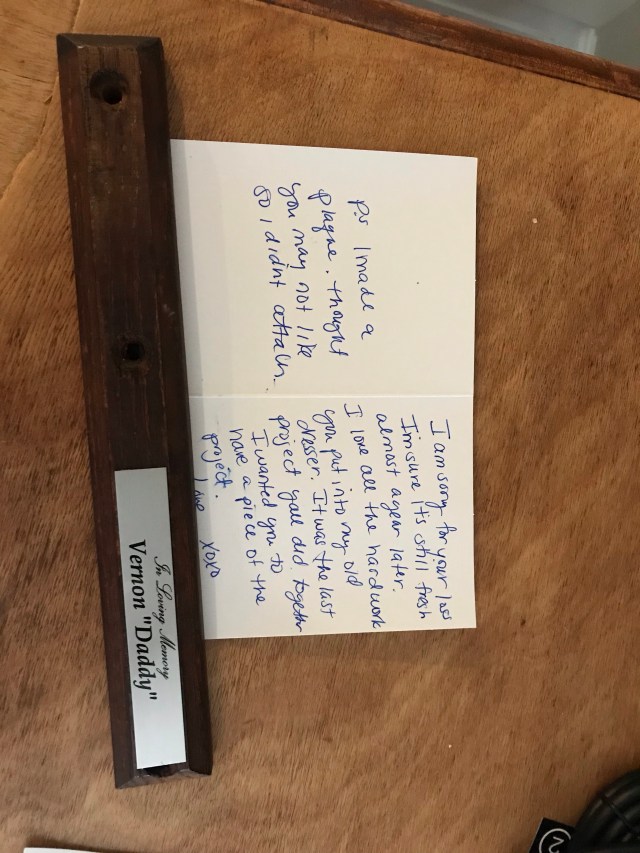 P.S I made a
plaque. thought
you may not like
so I didnt attach.
I am sorry for your loss
I'm sure it's still fresh
almost a year later.
I love all the hardwork
you put into my old
dresser. It was the last
project yall did together
I wanted you to
have a piece of the
project.
Love xoxo
In Loving Memory
Vernon "Daddy"
2